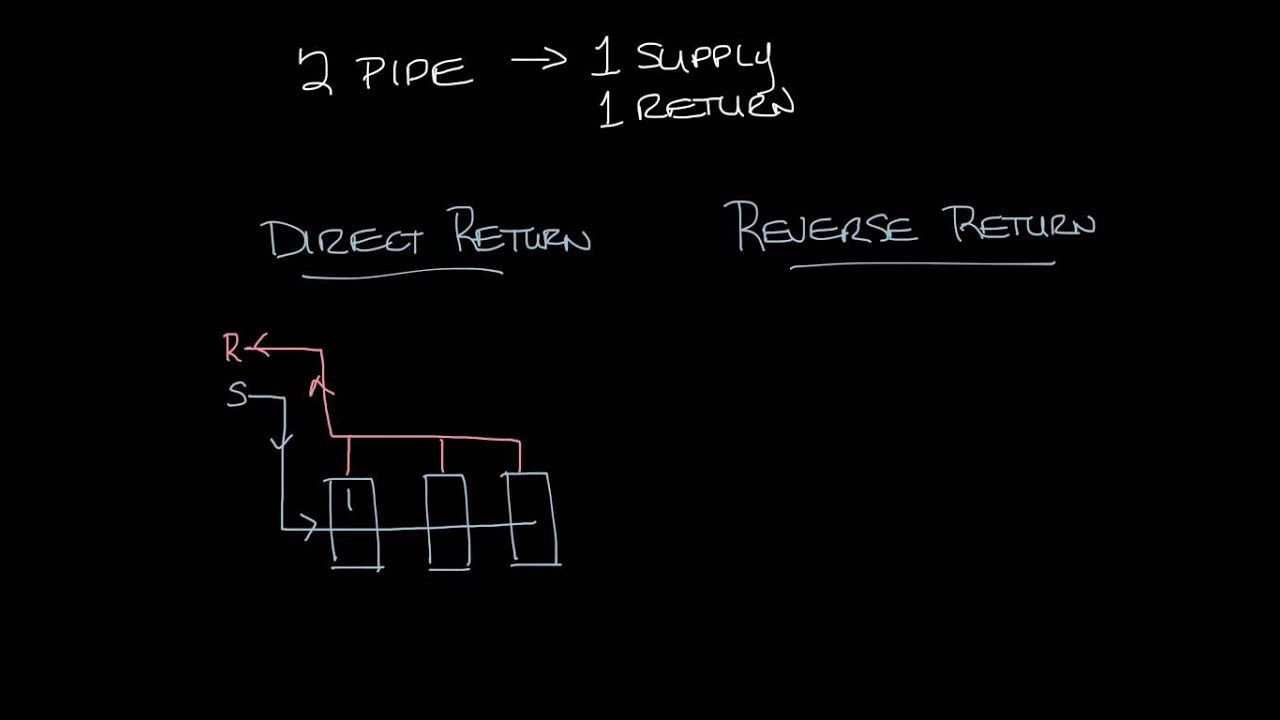 2 PIPE → 1 SUPPLY
1 RETURN
DIRECT RETURN
REVERSE RETURN
R
S
1